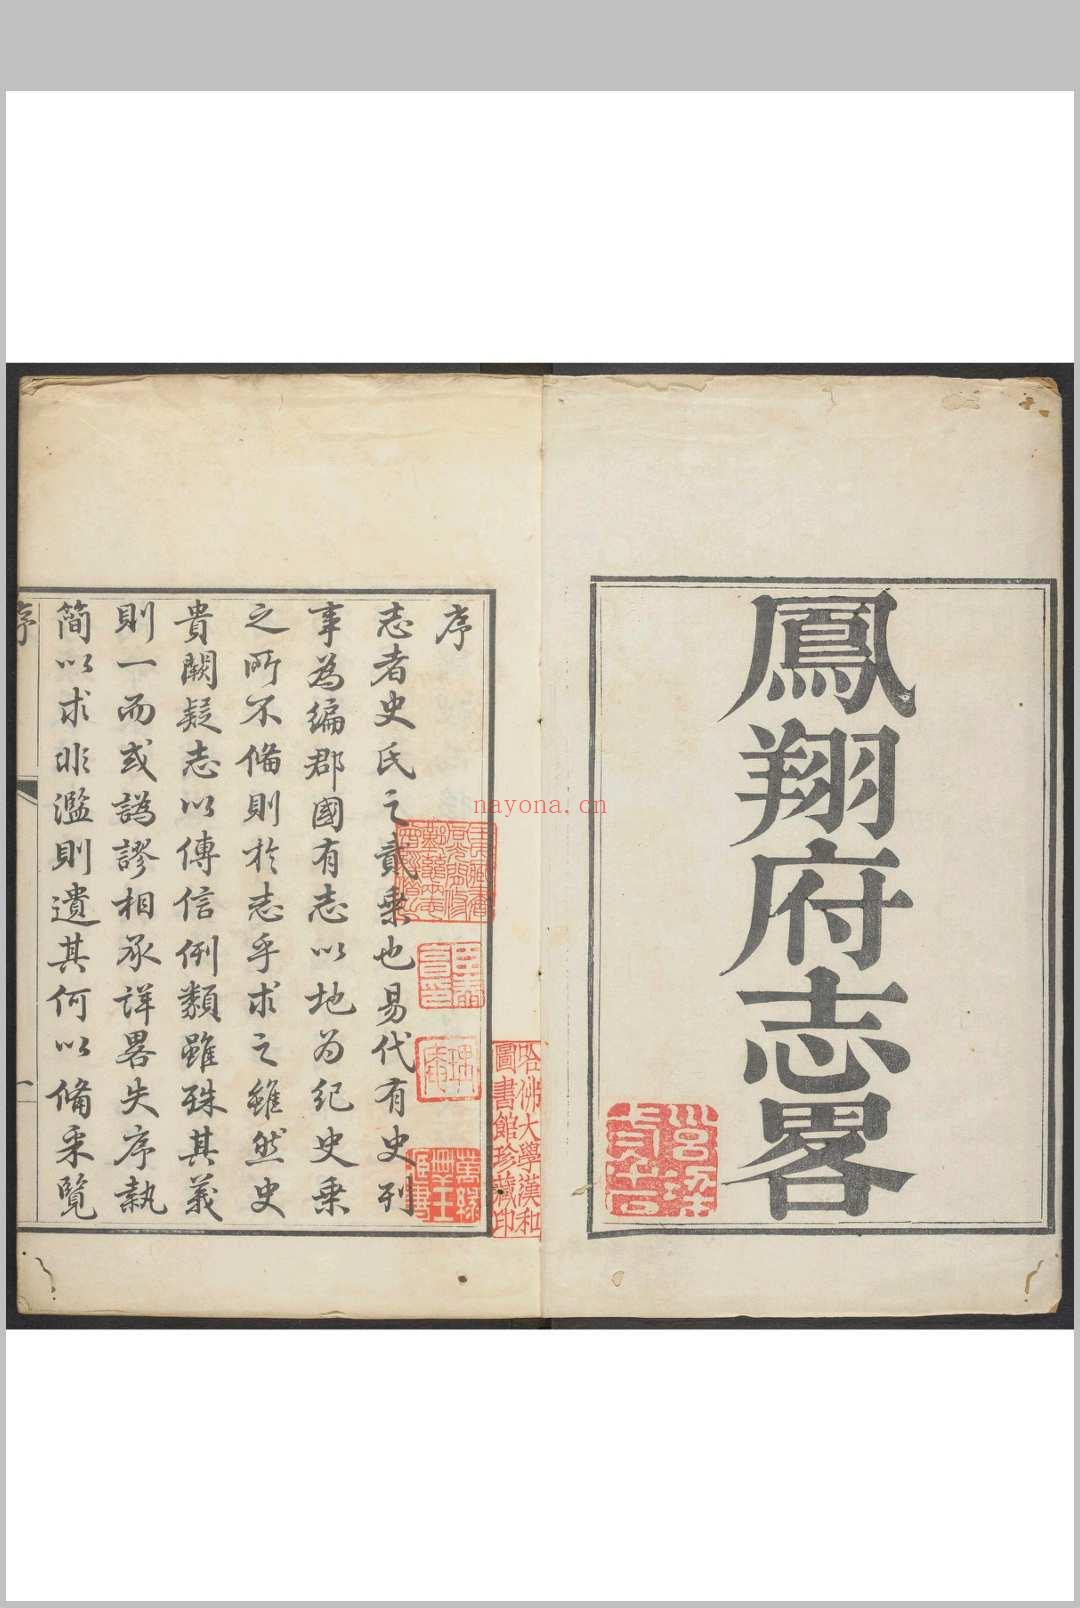 鳳翔府志畧
序
志者史氏之貳乗也易代有史列
事為編郡國有志以地為紀史乗
之所不備則於志乎求之雖然史
貴闕疑志以傳信例類雖殊其義
則一而或譌謬相承詳畧失序執
簡以求非濫則遺其何以備采覽
序
一
哈佛大學漢和
圖書館珍藏印
nayona.cn